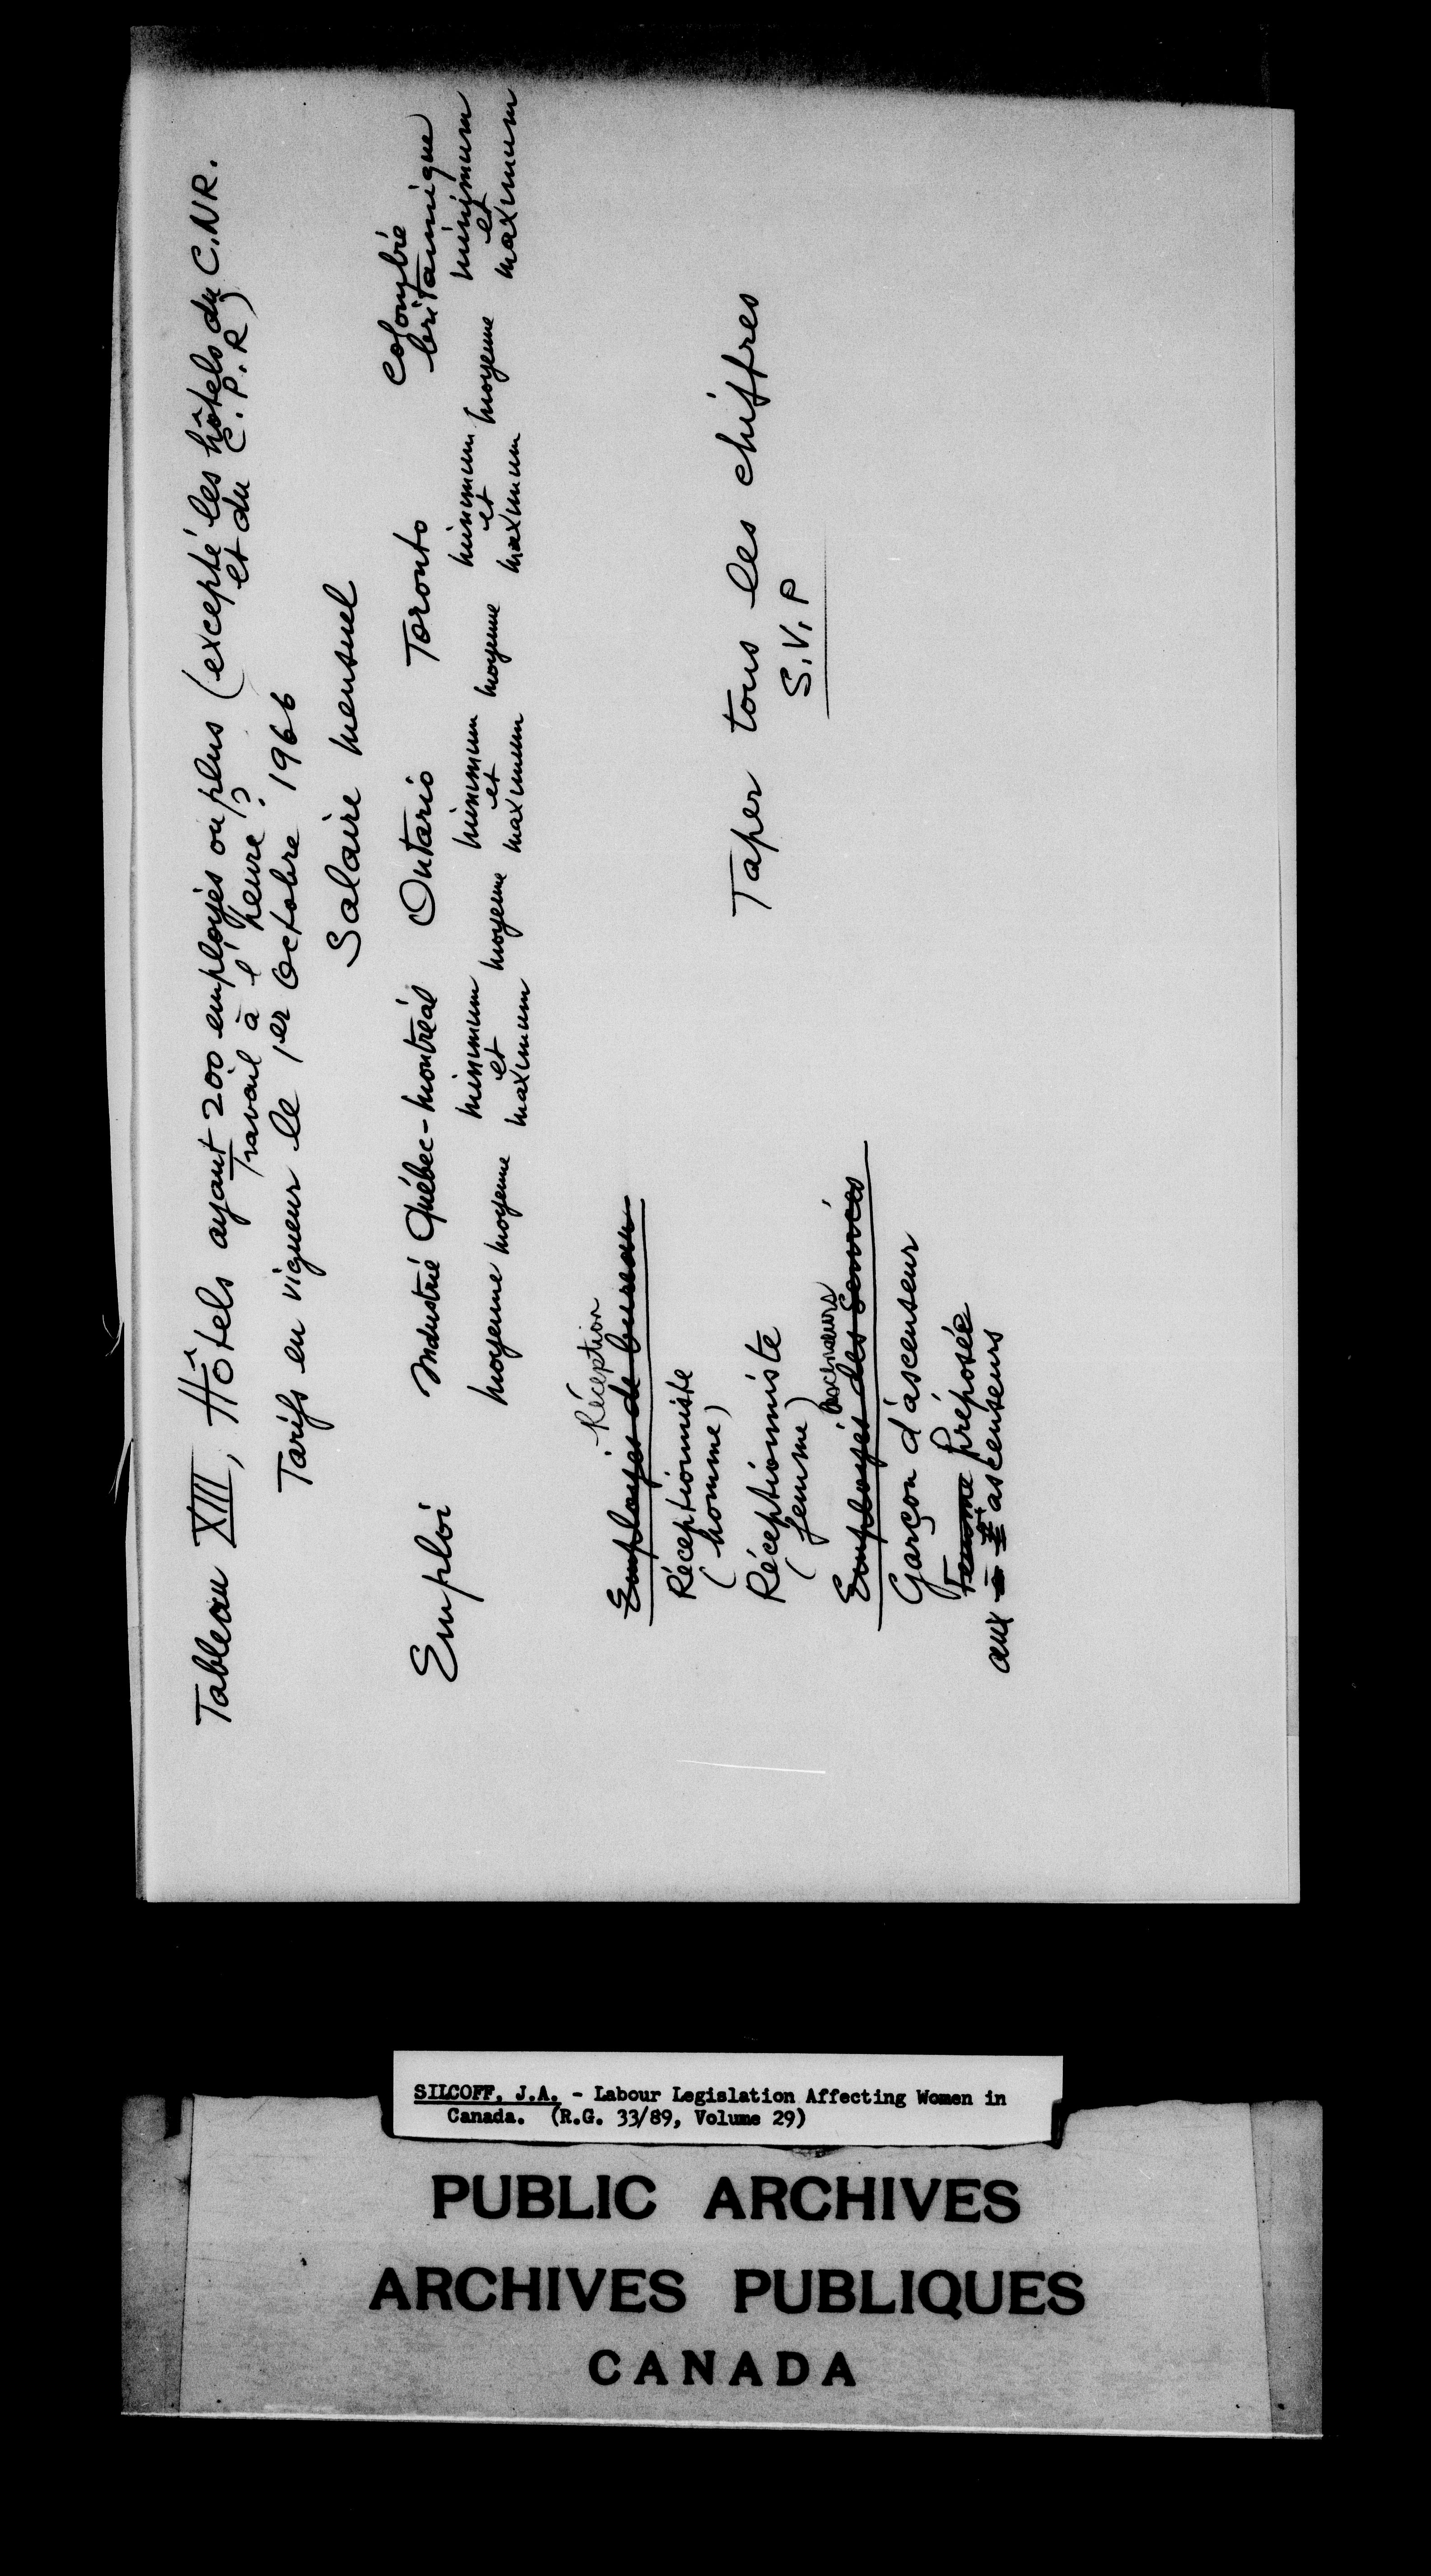 Tableau XIII, Hôtels ayant 200 employés ou plus (excepté les hôtels du C.N.R.
et du C.P.R)
Travail à l'heure?
Tarifs en vigueur le 1er Octobre 1966
Salaire mensuel
Emploi Industrie Québec-Montréal Ontario Toronto Colombie
britannique
minimum minimum minimum minimum
moyenne moyenne et moyenne et moyenne et moyenne et
maximum maximum maximum maximum
Réception
Employés de bureau
Réceptionniste
(homme)
Réceptionniste
(femme)
Taper tous les chiffres
S.V.P
Ascenseurs
Employés des Services
Garçon d'ascenseur
Femme Préposée
aux ascenseurs
SILCOFF, J.A. - Labour Legislation Affecting Women in
Canada. (R.G. 33/89, Volume 29)
PUBLIC ARCHIVES
ARCHIVES PUBLIQUES
CANADA